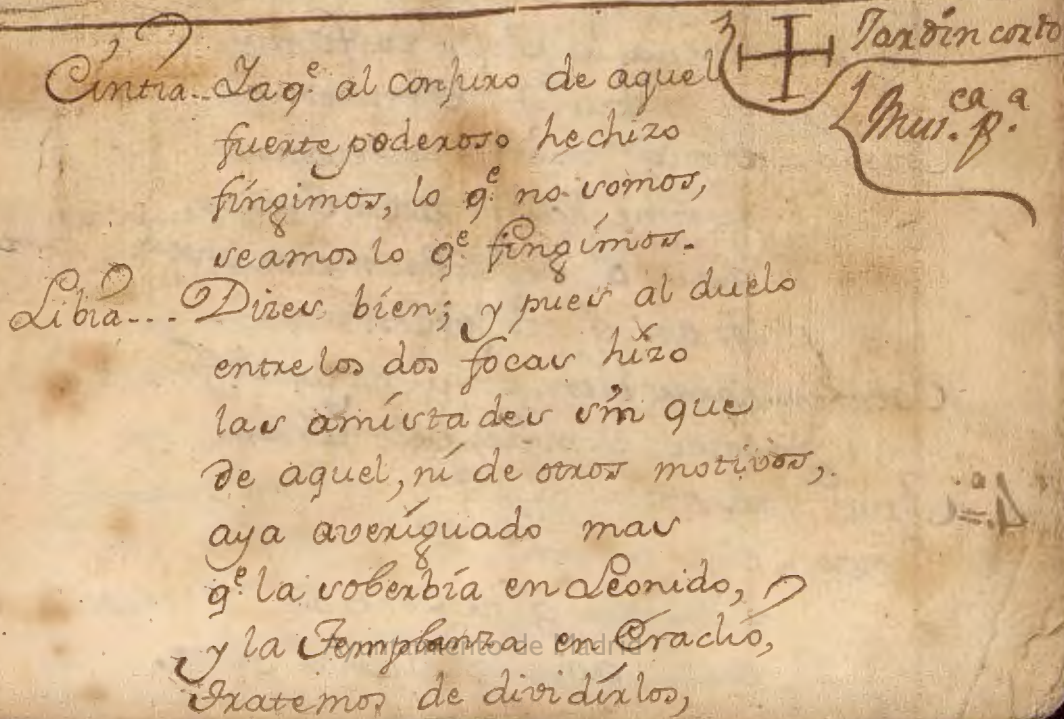 Jardin corto
Mus.ca p.a
Cintia.. Ya q.e al conjuro de aquel
fuerte poderoso hechizo
fingimos, lo q.e no somos,
seamos lo q.e fingimos.
Libia... Dizes bien; y pues al duelo
entre los dos focas hizo
las amistades sin que
de aquel, ni de otros motivos,
aya averiguado mas
q.e la soberbia en Leonido,
y la Templanza en Eraclio,
tratemos de dividirlos,
Ayuntamiento de Madrid